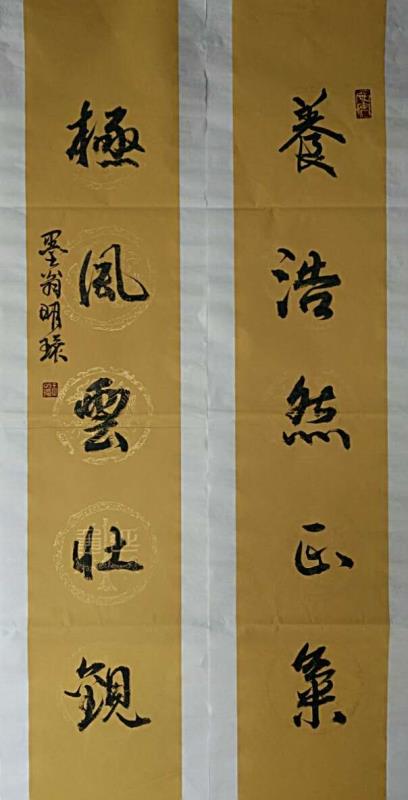 養浩然正氣
極風雲壯觀
墨翁明璋